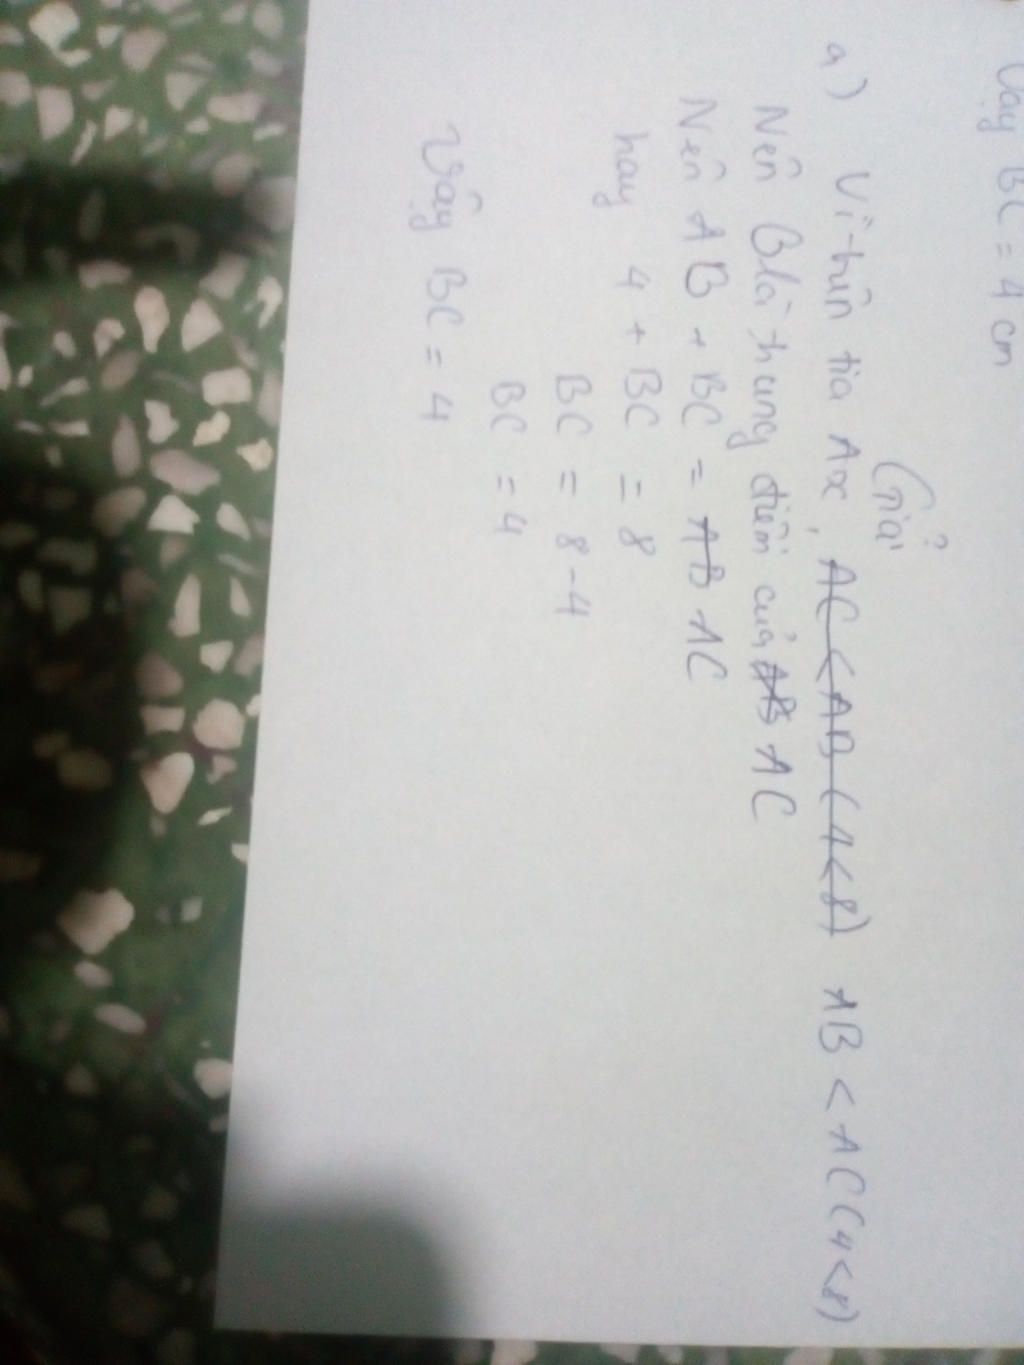 Vậy BC = 4 cm
Giải
a) Vì trên tia Ax, AC < AB (4<8) AB < AC (4<8)
Nên B là trung điểm của AB AC
Nên AB + BC = AB AC
hay 4 + BC = 8
BC = 8 - 4
BC = 4
Vậy BC = 4